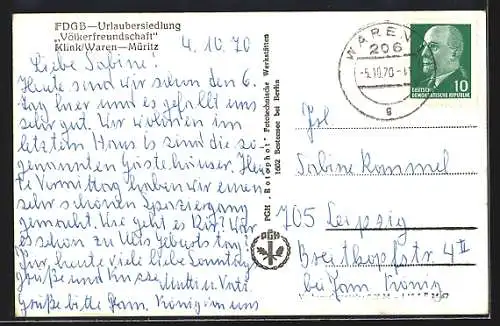 FDGB—Urlaubersiedlung
„Völkerfreundschaft"
Klink/Waren—Müritz
4.10.70
Liebe Sabine!
Heute sind wir schon den 6.
Tag hier und es gefällt uns
sehr gut. Wir wohnen im
letzten Haus es sind die so-
genannten Gästehäuser. Heu-
te Vormittag haben wir einen
sehr schönen Spaziergang
gemacht. Wie geht es Dir? War
es schön zu Utes Geburtstag
Für heute viele liebe Sonntag
Grüße und Küsse
Mutti u. Vati
Grüße bitte Fam. König von uns
PGH „Rotophot" Fototechnische Werkstätten
1602 Bestensee bei Berlin
PGH
WAREN
206
-5.10.70
g
DEUTSCHE
DEMOKRATISCHE REPUBLIK
10
Sabine Rommel
705 Leipzig
Breitkopfstr. 4 II
bei Fam. König